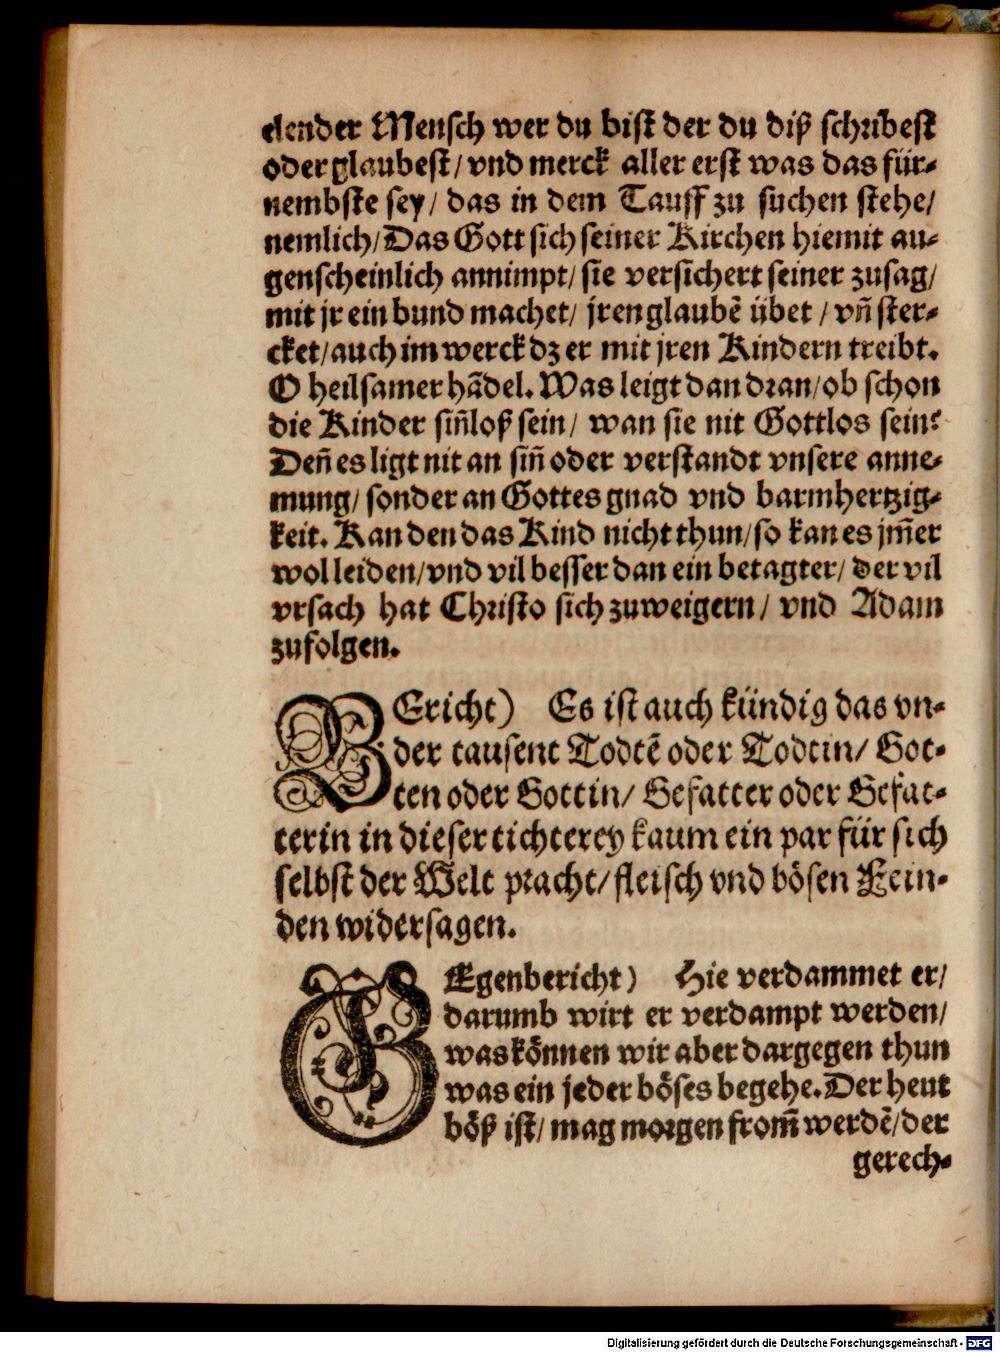 elender Mensch wer du bist der du diß schribest
oder glaubest/ vnd merck aller erst was das für-
nembste sey/ das in dem Tauff zu suchen stehe/
nemlich/ Das Gott sich seiner Kirchen hiemit au-
genscheinlich annimpt/ sie versichert seiner zusag/
mit jr ein bund machet/ jren glaubē übet / vñ ster-
cket/ auch im werck dz er mit jren Kindern treibt.
O heilsamer hãdel. Was leigt dan dran/ ob schon
die Kinder siñloß sein/ wan sie nit Gottlos sein?
Deñ es ligt nit an siñ oder verstandt vnsere anne-
mung/ sonder an Gottes gnad vnd barmhertzig-
keit. Kan den das Kind nicht thun/ so kan es jm̃er
wol leiden/ vnd vil besser dan ein betagter/ der vil
vrsach hat Christo sich zuweigern/ vnd Adam
zufolgen.
BEricht) Es ist auch kündig das vn-
der tausent Todtē oder Todtin/ Got-
ten oder Gottin/ Gefatter oder Gefat-
terin in dieser tichterey kaum ein par für sich
selbst der Welt pracht/ fleisch vnd bösen Fein-
den widersagen.
GEgenbericht) Hie verdammet er/
darumb wirt er verdampt werden/
was können wir aber dargegen thun
was ein jeder böses begehe. Der heut
böß ist/ mag morgen from̃ werdē/ der
gerech-
Digitalisierung gefördert durch die Deutsche Forschungsgemeinschaft - DFG